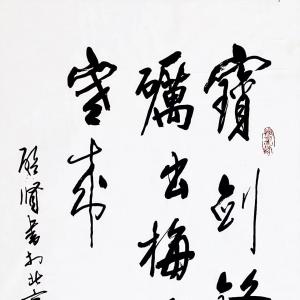 寶劍鋒
礪出梅
寒來
賢書於北京